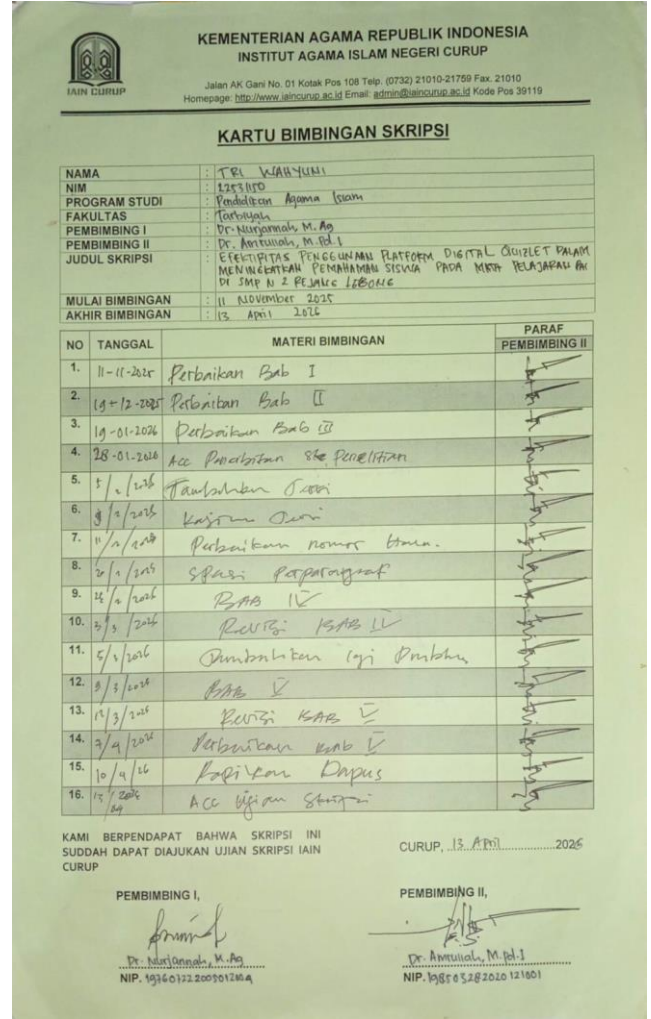 KEMENTERIAN AGAMA REPUBLIK INDONESIA
INSTITUT AGAMA ISLAM NEGERI CURUP
IAIN CURUP
Jalan AK Gani No. 01 Kotak Pos 108 Telp. (0732) 21010-21759 Fax. 21010
Homepage: http://www.iaincurup.ac.id Email: admin@iaincurup.ac.id Kode Pos 39119
KARTU BIMBINGAN SKRIPSI
NAMA : TRI WAHYUNI
NIM :
PROGRAM STUDI : Pendidikan Agama Islam
FAKULTAS : Tarbiyah
PEMBIMBING I : Dr. Nurjannah, M. Ag
PEMBIMBING II : Dr. Amrullah, M. Pd. I
JUDUL SKRIPSI : EFEKTIFITAS PENGGUNAAN PLATFORM DIGITAL QUIZLET DALAM
MENINGKATKAN PEMAHAMAN SISWA PADA MATA PELAJARAN PAI
DI SMP N 2 REJANG LEBONG
MULAI BIMBINGAN : 11 NOVEMBER 2025
AKHIR BIMBINGAN : 13 April 2026
NO TANGGAL MATERI BIMBINGAN PARAF PEMBIMBING II
1. 11-11-2025 Perbaikan Bab I
2. 19-12-2025 Perbaikan Bab II
3. 19-01-2026 Perbaikan Bab III
4. 28-01-2026 Acc Penerbitan SK Penelitian
5. Tambahkan Teori
6.
7. Perbaikan nomor
8. Spasi Perparagraf
9. BAB IV
10. 3/3/2026 Revisi BAB IV
11. 5/3/2026 lagi
12. 9/3/2026 BAB V
13. 12/3/2026 Revisi BAB V
14. 7/4/2026 Perbaikan Bab V
15. 10/4/26 Rapikan Dapus
16. Acc Ujian Skripsi
KAMI BERPENDAPAT BAHWA SKRIPSI INI
SUDDAH DAPAT DIAJUKAN UJIAN SKRIPSI IAIN
CURUP
CURUP, 13 April 2026
PEMBIMBING I,
Dr. Nurjannah, M. Ag
NIP.
PEMBIMBING II,
Dr. Amrullah, M. Pd. I
NIP. 198503282020121001